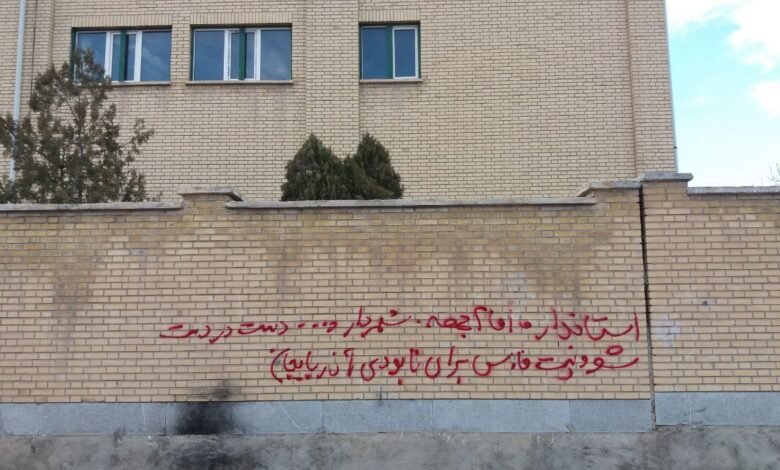 استاندار، امام جمعه، شهردار و... دست در دست
شوونیست فارس برای نابودی آذربایجان